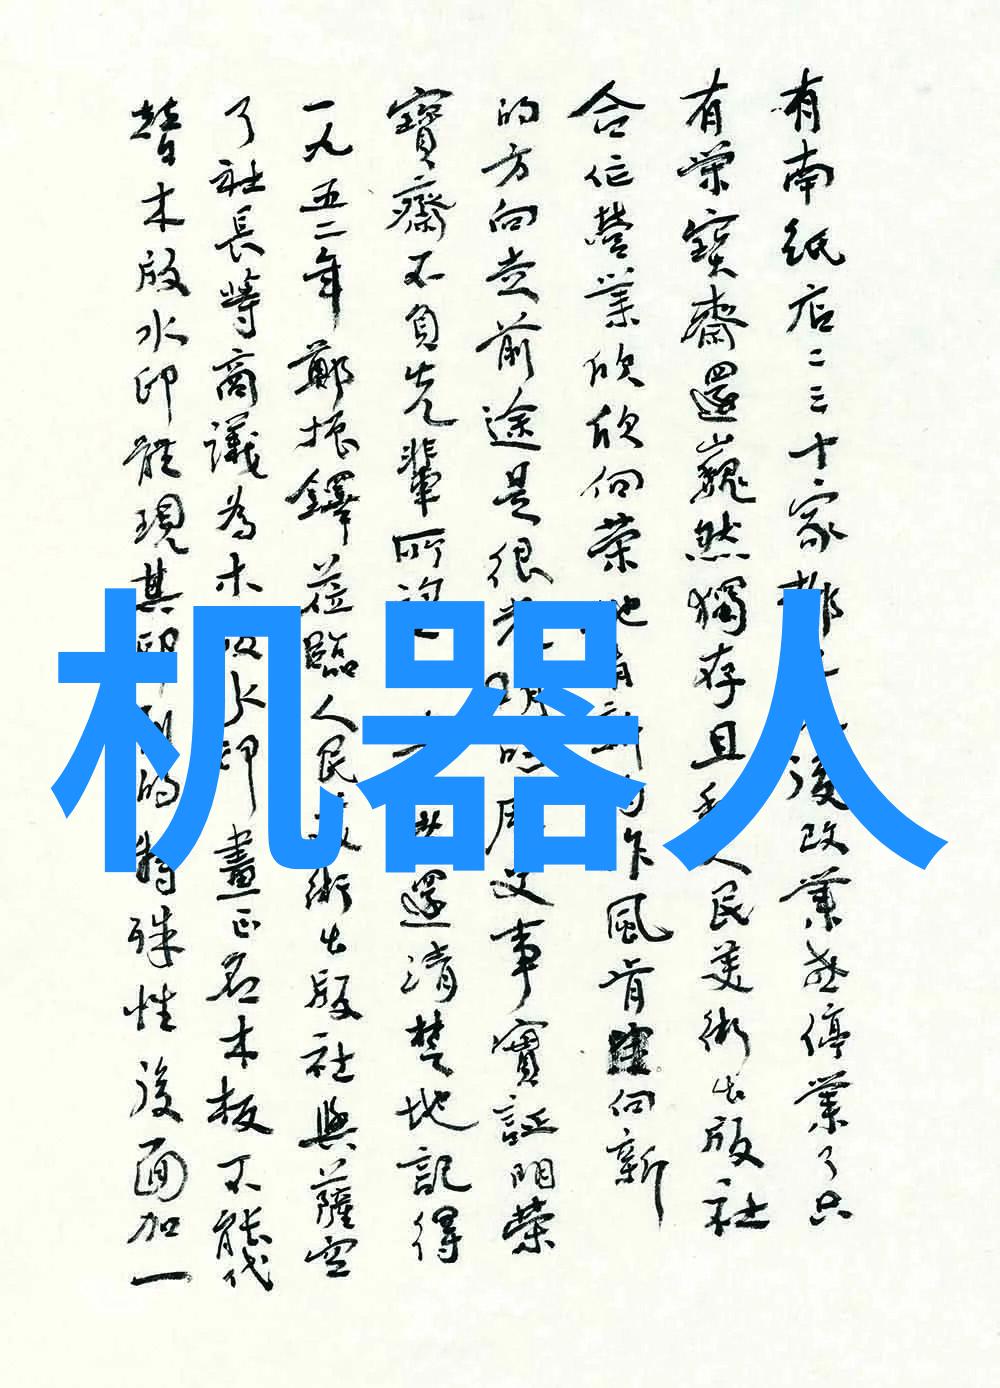 有南纸店二三十家都后改業或停業了只
有榮寶齋還巍然獨存且和人民美術出版社
合作營業欣欣向荣地有新的作風肯向新
的方向走前途是很光明的周文事實証明榮
寶齋不負先輩所還清楚地記得
一九五二年鄭振鐸莅臨人民美術出版社與薩空
了社長等商議為木版水印畫正名木板不能代
替木版水印能現其印刷的特殊性後面加一
机器人